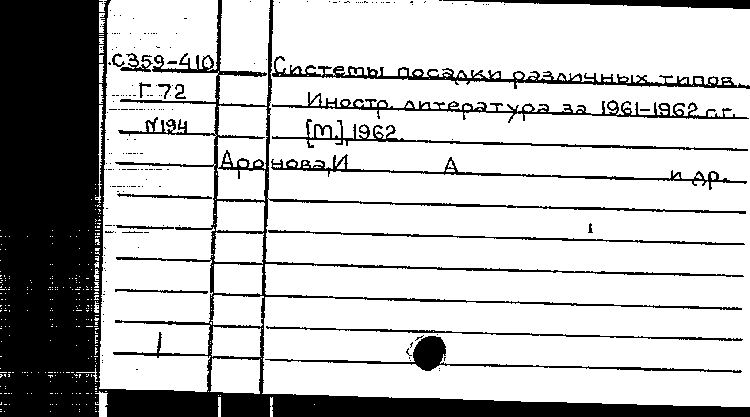 С359-410 Системы посадки различных типов.
Г 72 Иностр. литература за 1961-1962 г.г.
№194 [М.], 1962.
Аронова, И А и др.
1